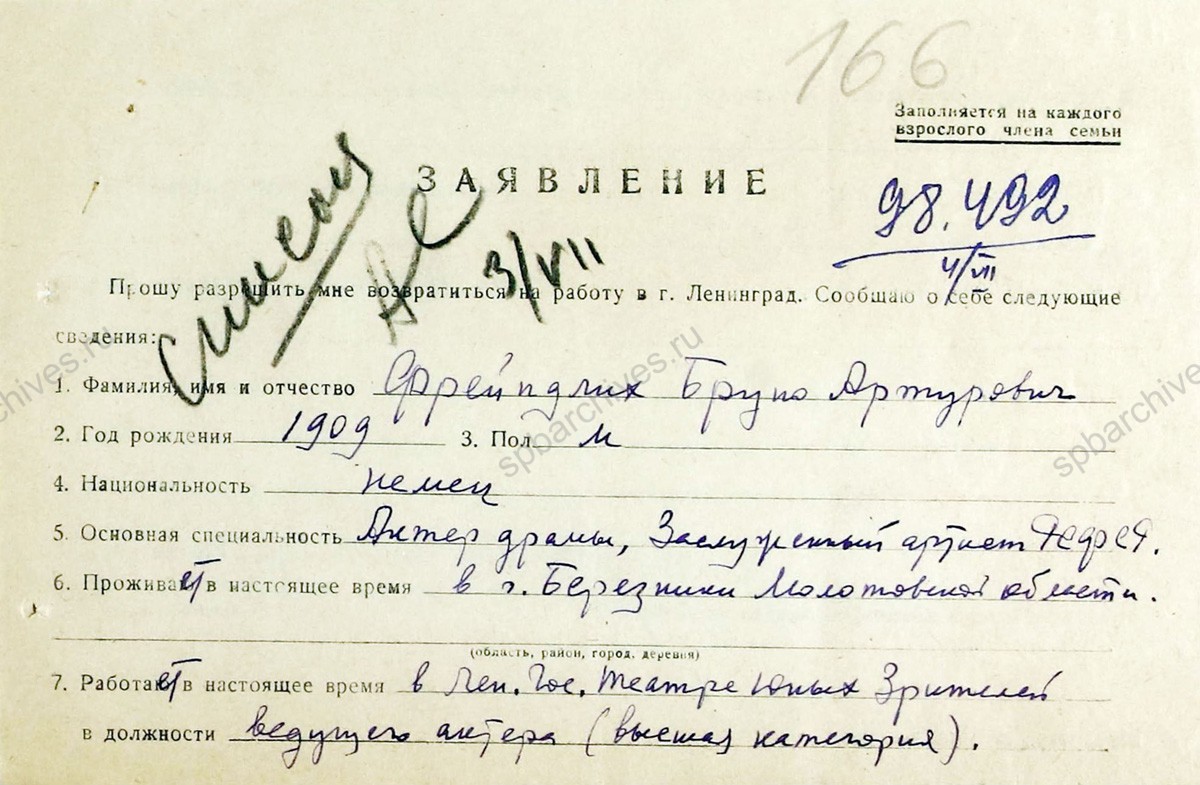 166
Заполняется на каждого
взрослого члена семьи
ЗАЯВЛЕНИЕ
98.492
4/VII
3/VII
Прошу разрешить мне возвратиться на работу в г. Ленинград. Сообщаю о себе следующие
сведения:
1. Фамилия, имя и отчество Фрейндлих Бруно Артурович
2. Год рождения 1909 3. Пол м
4. Национальность немец
5. Основная специальность Актер драмы, Заслуженный артист РСФСР.
6. Проживает в настоящее время в г. Березники Молотовской области.
(область, район, город, деревня)
7. Работает в настоящее время в Лен. Гос. Театре Юных Зрителей
в должности ведущего актера (высшая категория).
spbarchives.ru
spbarchives.ru
spbarchives.ru